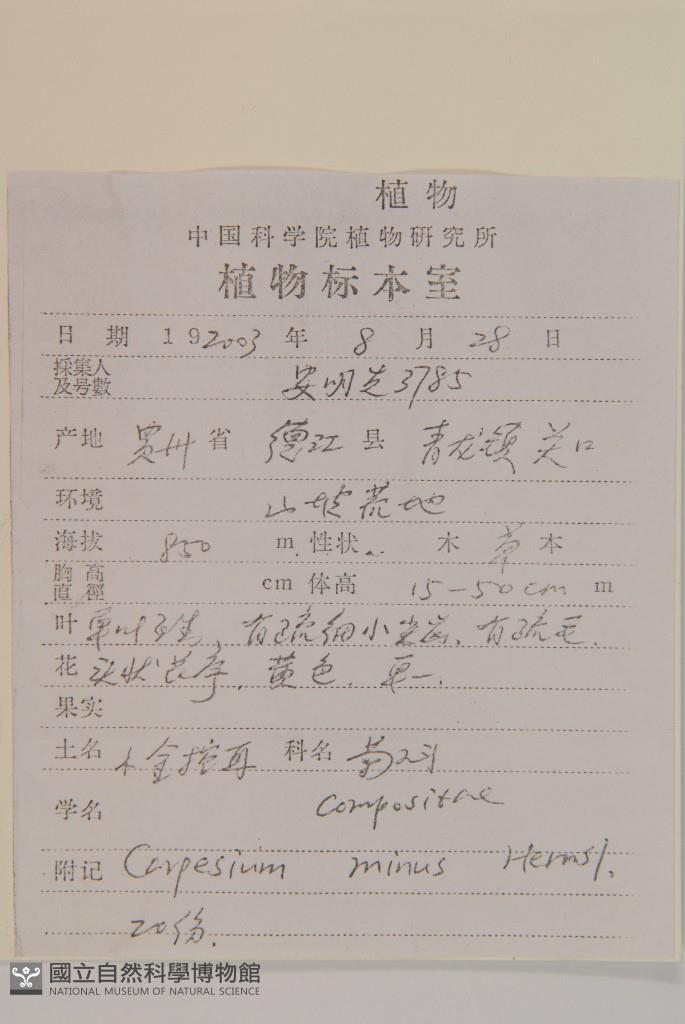 植物
中国科学院植物研究所
植物标本室
日期 192003 年 8 月 28 日
採集人及号數 安明先3785
产地 贵州 省 德江 县 青龙镇 关口
环境 山坡荒地
海拔 850 m 性状 木 草 本
胸高直徑 cm 体高 15-50cm m
叶 单叶互生, 有疏细小尖齿, 有疏毛.
花 头状花序, 黄色, 单一.
果实
土名 小金挖耳 科名 菊科
学名 Compositae
附记 Carpesium minus Hemsl.
20份.
國立自然科學博物館
NATIONAL MUSEUM OF NATURAL SCIENCE